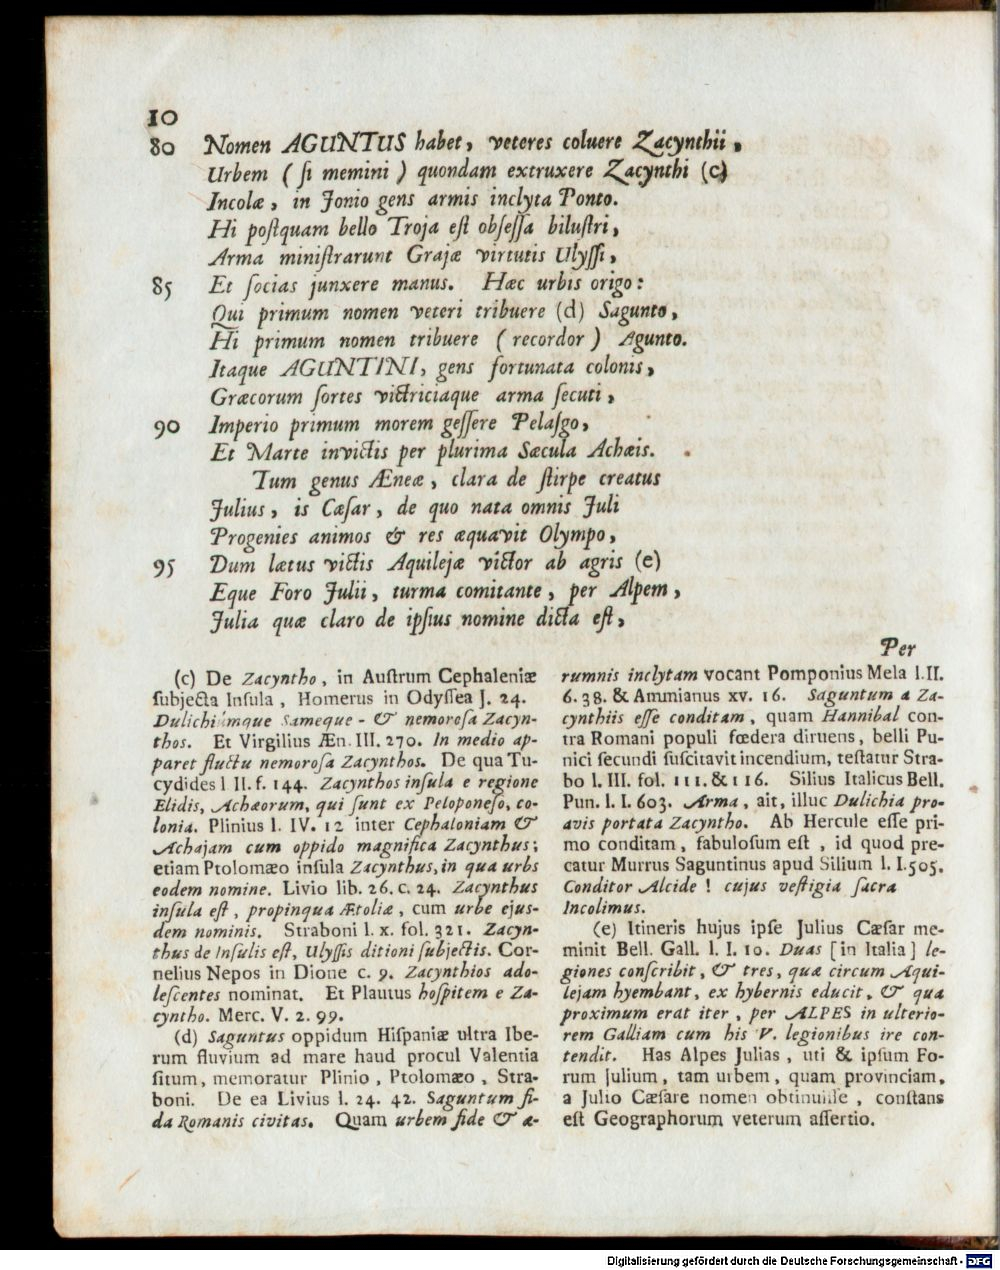 10
80 Nomen AGUNTUS habet, veteres coluere Zacynthii,
Urbem ( ſi memini ) quondam extruxere Zacynthi (c)
Incolæ, in Jonio gens armis inclyta Ponto.
Hi poſtquam bello Troja eſt obſeſſa biluſtri,
Arma miniſtrarunt Grajæ virtutis Ulyſſi,
85 Et ſocias junxere manus. Hæc urbis origo:
Qui primum nomen veteri tribuere (d) Sagunto,
Hi primum nomen tribuere ( recordor ) Agunto.
Itaque AGUNTINI, gens fortunata colonis,
Græcorum ſortes victriciaque arma ſecuti,
90 Imperio primum morem geſſere Pelaſgo,
Et Marte invictis per plurima Sæcula Achæis.
Tum genus Æneæ, clara de ſtirpe creatus
Julius, is Cæſar, de quo nata omnis Juli
Progenies animos & res æquavit Olympo,
95 Dum lætus victis Aquilejæ victor ab agris (e)
Eque Foro Julii, turma comitante, per Alpem,
Julia quæ claro de ipſius nomine dicta eſt,
Per
(c) De Zacyntho, in Auſtrum Cephaleniæ
ſubjecta Inſula, Homerus in Odyſſea J. 24.
Dulichiumque Sameque - & nemoroſa Zacyn-
thos. Et Virgilius Æn. III. 270. In medio ap-
paret fluctu nemoroſa Zacynthos. De qua Tu-
cydides l II. f. 144. Zacynthos inſula e regione
Elidis, Achæorum, qui ſunt ex Peloponeſo, co-
lonia. Plinius l. IV. 12 inter Cephaloniam &
Achajam cum oppido magnifica Zacynthus;
etiam Ptolomæo inſula Zacynthus, in qua urbs
eodem nomine. Livio lib. 26. c. 24. Zacynthus
inſula eſt, propinqua Ætoliæ, cum urbe ejus-
dem nominis. Straboni l. x. fol. 321. Zacyn-
thus de Inſulis eſt, Ulyſſis ditioni ſubjectis. Cor-
nelius Nepos in Dione c. 9. Zacynthios ado-
leſcentes nominat. Et Plautus hoſpitem e Za-
cyntho. Merc. V. 2. 99.
(d) Saguntus oppidum Hiſpaniæ ultra Ibe-
rum fluvium ad mare haud procul Valentia
ſitum, memoratur Plinio, Ptolomæo, Stra-
boni. De ea Livius l. 24. 42. Saguntum fi-
da Romanis civitas. Quam urbem fide & æ-
rumnis inclytam vocant Pomponius Mela l.II.
6. 38. & Ammianus xv. 16. Saguntum a Za-
cynthiis eſſe conditam, quam Hannibal con-
tra Romani populi fœdera diruens, belli Pu-
nici ſecundi ſuſcitavit incendium, teſtatur Stra-
bo l. III. fol. 111. & 116. Silius Italicus Bell.
Pun. l. I. 603. Arma, ait, illuc Dulichia pro-
avis portata Zacyntho. Ab Hercule eſſe pri-
mo conditam, fabuloſum eſt, id quod pre-
catur Murrus Saguntinus apud Silium l. I. 505.
Conditor Alcide ! cujus veſtigia ſacra
Incolimus.
(e) Itineris hujus ipſe Julius Cæſar me-
minit Bell. Gall. l. I. 10. Duas [in Italia] le-
giones conſcribit, & tres, quæ circum Aqui-
lejam hyembant, ex hybernis educit, & qua
proximum erat iter, per ALPES in ulterio-
rem Galliam cum his V. legionibus ire con-
tendit. Has Alpes Julias, uti & ipſum Fo-
rum Julium, tam urbem, quam provinciam,
a Julio Cæſare nomen obtinuiſſe, conſtans
eſt Geographorum veterum aſſertio.
Digitalisierung gefördert durch die Deutsche Forschungsgemeinschaft - DFG